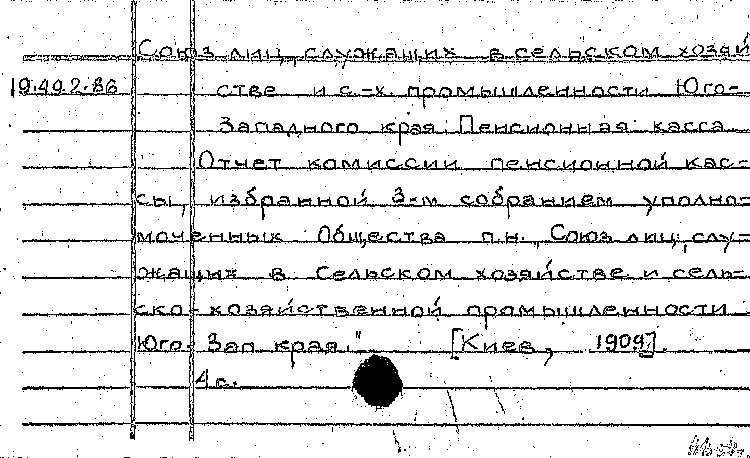 Союз лиц, служащих в сельском хозяй
19.49.2.86 стве и с.-х. промышленности Юго-
Западного края. Пенсионная касса.
Отчет комиссии пенсионной кас-
сы, избранной 3-м собранием уполно-
моченных Общества п.н. „Союз лиц, слу-
жащих в Сельском хозяйстве и сель-
ско-хозяйственной промышленности
Юго-Зап. края." [Киев, 1909].
4 с.